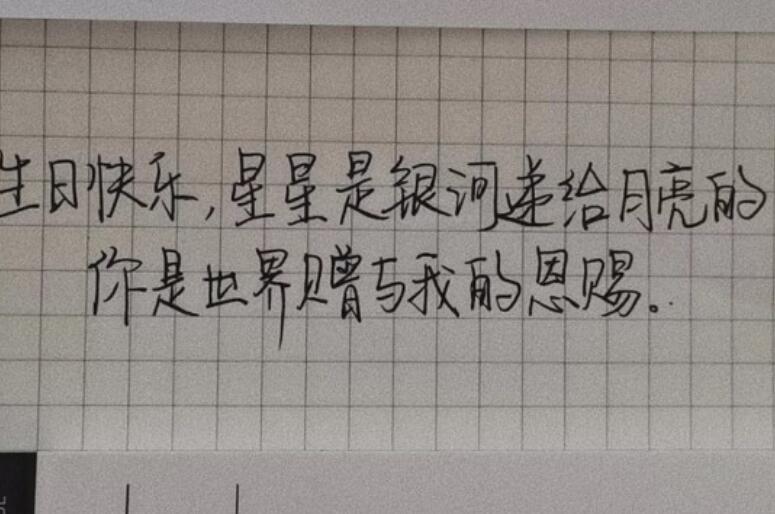 生日快乐,星星是银河递给月亮的
你是世界赠与我的恩赐。